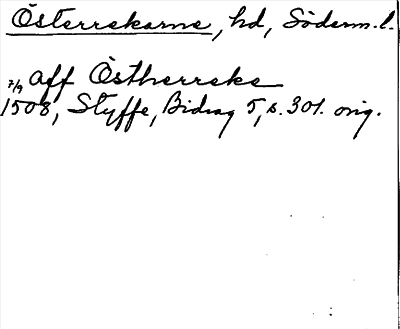 Österrekarne, hd, Söderm.l.
7/9 aff Östherreke
1508, Styffe, Bidrag 5, s. 301. orig.